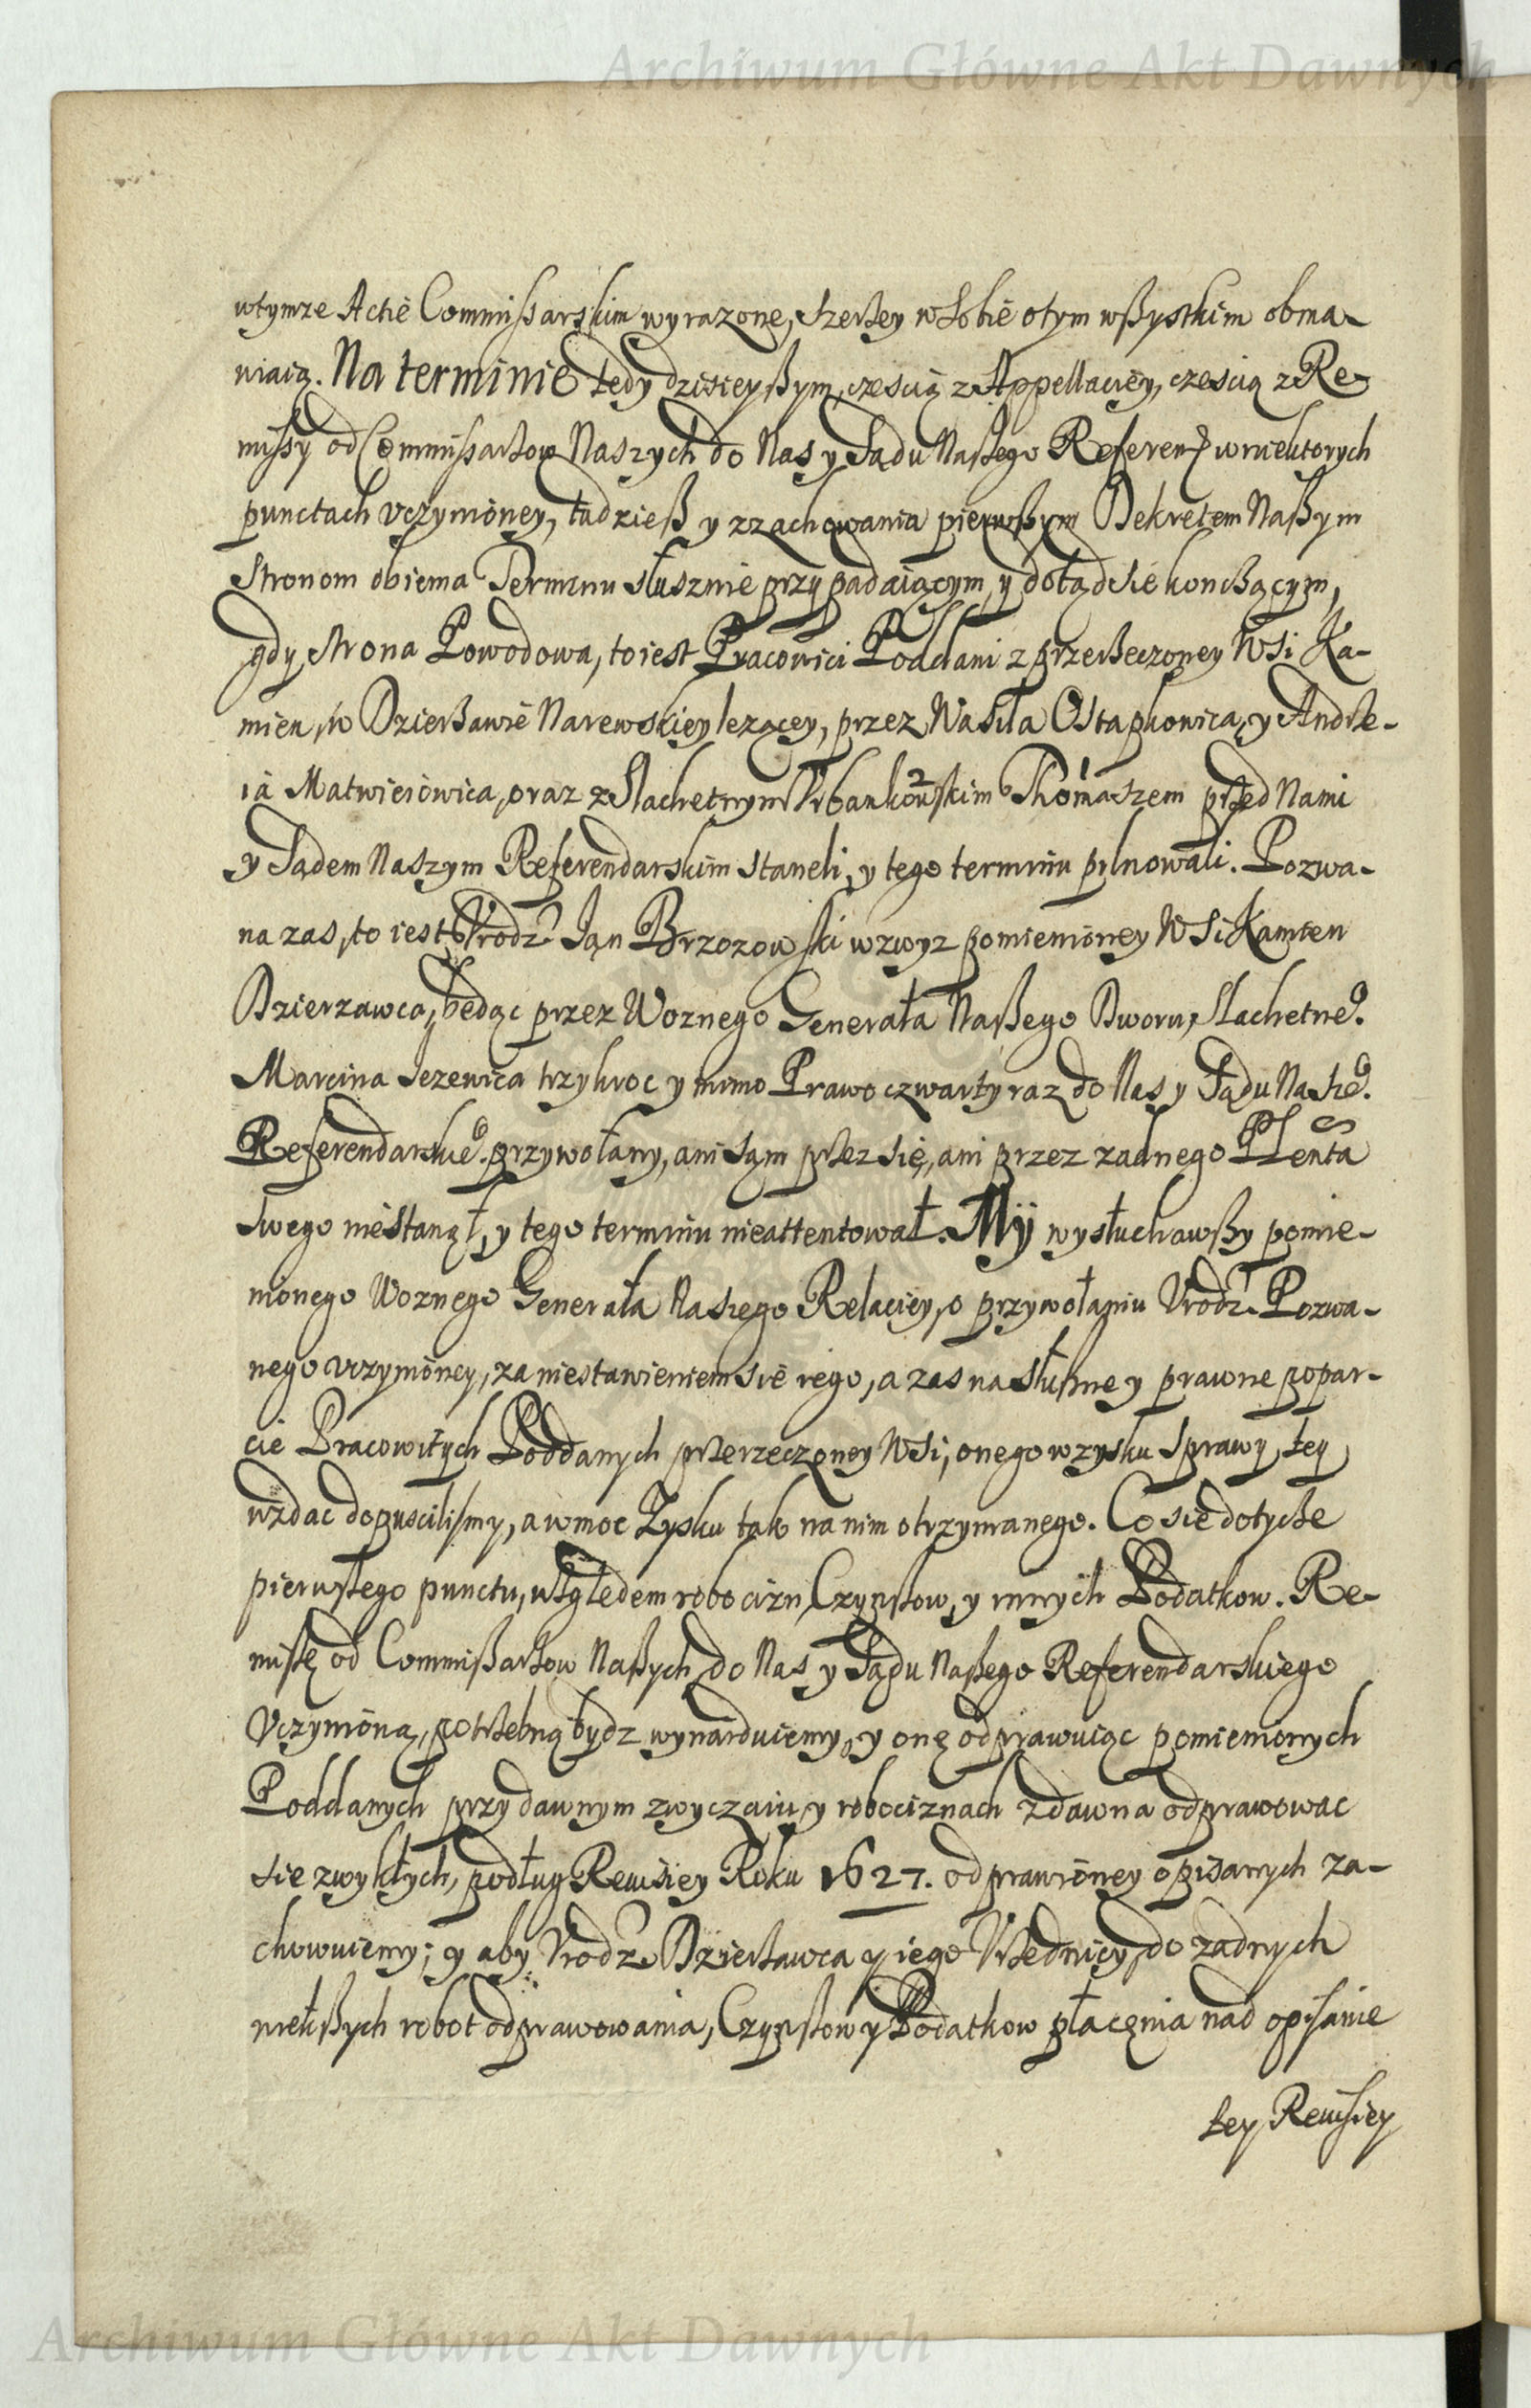 Archiwum Główne Akt Dawnych
wtymze Actie Commissarskim wyrazone, szerzey w Sobie otym wßystkim obma-
niaią. Na terminie tedy dzisieyßym, czescią z Appellaciey, czescią z Re-
missy od Commissarzow Naszych do Nas y Sądu Naszego Referen. w niektorych
punctach vczynioney, tudzieß y zzachowania pierwßym Dekretem Naßym
Stronom obiema Terminu słusznie przypadaiącym, y dotąd sie konczącym,
gdy strona Powodowa, to iest Pracowici Poddani z przerzeczoney Wsi Ka-
mien, w Dzierżawie Narewskiey lezącey, przez Wasila Ostaphowica, y Andrze-
ia Matwieiowica, oraz z Slachetnym Vrbankowskim 2 Thomaszem 1 przed Nami
y Sądem Naszym Referendarskim staneli, y tego terminu pilnowali. Pozwa-
na zas, to iest Vrodz. Jan Brzozowski wzwyz pomienioney Wsi Kamien
Dzierzawca, będąc przez Woznego Generała Naßego Dworu, Slachetneo.
Marcina Jezewica trzykroc y mimo Prawo czwarty raz do Nas y Sądu Naszeo.
Referendarskieo. przywołany, ani sam przez się, ani przez zadnego Plenta
swego niestanął, y tego terminu nieattentował. My wysłuchawßy pomie-
nionego Woznego Generała Naszego Relaciey, o przywołaniu Vrodz. Pozwa-
nego vczynioney, za niestawieniem sie iego, a zas na słuszne y prawne popar-
cie Pracowitych Poddanych przerzeczoney Wsi, onego wzysku sprawy tey
wzdac dopuscilismy, a wmoc Zysku tak na nim otrzymanego. Co sie dotycze
pierwszego punctu, względem robocizn, Czynszow, y innych Podatkow. Re-
missę od Commißarzow Naßych do Nas y Sądu Naßego Referendarskiego
Vczynioną, potrzebną bydz wynayduiemy, y onę odprawuiąc pomienionych
Poddanych przy dawnym zwyczaiu y robociznach zdawna odprawowac
sie zwykłych, podług Rewisiey Roku 1627. odprawioney opisanych za-
chowuiemy; y aby Vrodz. Dzierzawca y iego Vrzednicy do zadnych
wiekßych robot odprawowania, Czynszow y Podatkow płacenia nad opisanie
tey Rewisiey
Archiwum Główne Akt Dawnych